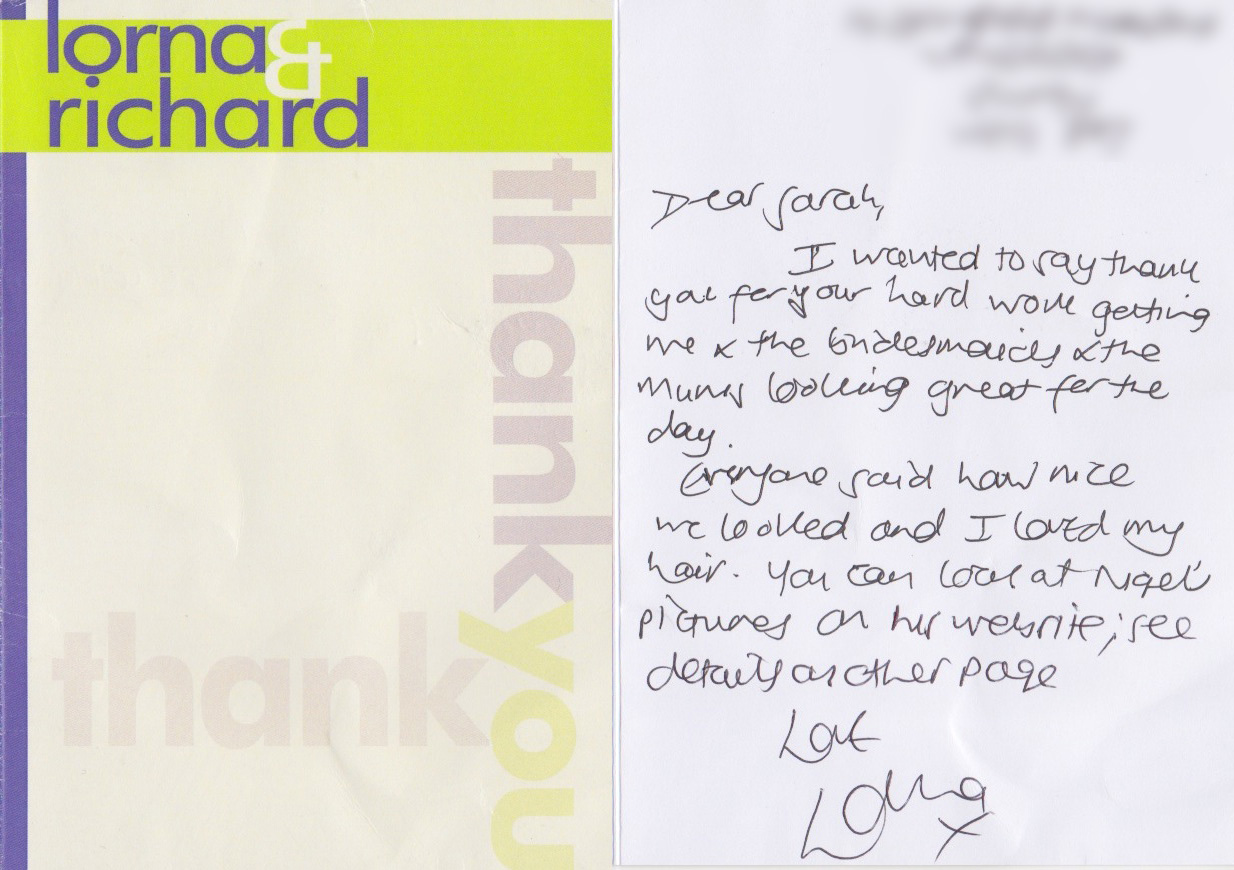 lorna &
richard
thank you
thank
Dear Sarah,
I wanted to say thank
you for your hard work getting
me & the bridesmaids & the
Mums looking great for the
day.
Everyone said how nice
we looked and I loved my
hair. You can look at Nigel's
pictures on his website; see
details on other page
Love
Lorna
x